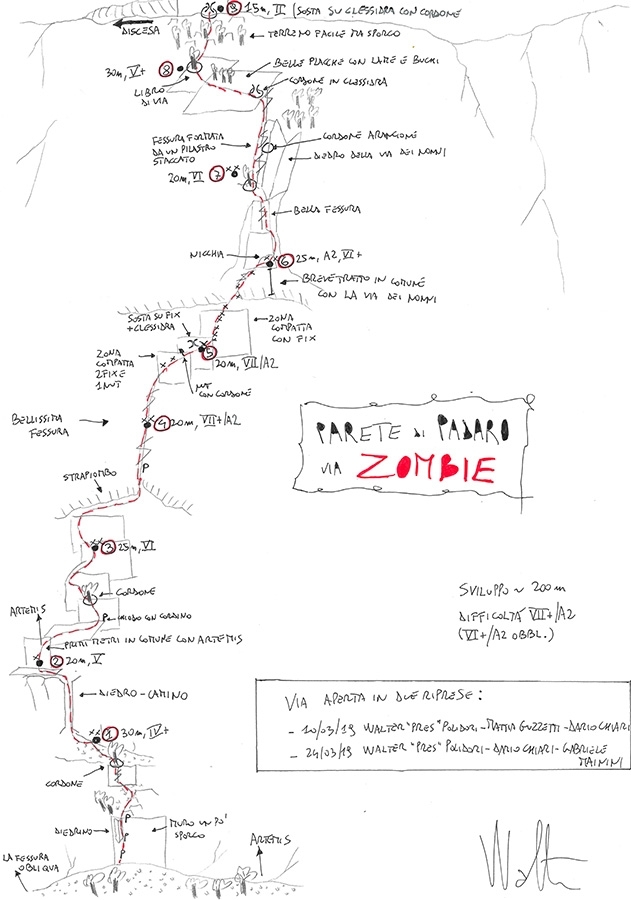 9 15m, II (SOSTA SU CLESSIDRA CON CORDONE
DISCESA
TERRENO FACILE MA SPORCO
BELLE PLACCHE CON LAME E BUCHI
30m, V+ 8
LIBRO
DI VIA
CORDONE IN CLESSIDRA
FESSURA FORMATA
DA UN PILASTRO
STACCATO
CORDONE ARANCIONE
DIEDRO DELLA VIA DEI NONNI
20m, VI 7
BELLA FESSURA
NICCHIA
6 25m, A2, VI+
BREVE TRATTO IN COMUNE
CON LA VIA DEI NONNI
SOSTA SU FIX
+ CLESSIDRA
ZONA
COMPATTA
CON FIX
ZONA
COMPATTA
2 FIX E
1 NUT
5
20m, VII/A2
NUT
CON CORDONE
BELLISSIMA
FESSURA
4 20m, VII+/A2
P
PARETE di PADARO
VIA ZOMBIE
STRAPIOMBO
3 25m, VI
CORDONE
SVILUPPO ~ 200m
DIFFICOLTÀ VII+/A2
(VI+/A2 OBBL.)
ARTEMIS
P CHIODO CON CORDINO
PRIMI METRI IN COMUNE CON ARTEMIS
2 20m, V
DIEDRO-CAMINO
VIA APERTA IN DUE RIPRESE:
- 10/03/19 WALTER "PRES" POLIDORI - MATTIA GUZZETTI - DARIO CHIARI
- 24/03/19 WALTER "PRES" POLIDORI - DARIO CHIARI - GABRIELE
MAININI
1 30m, IV+
CORDONE
P
DIEDRINO
P
P
MURO UN PO'
SPORCO
LA FESSURA
OBLIQUA
ARTEMIS